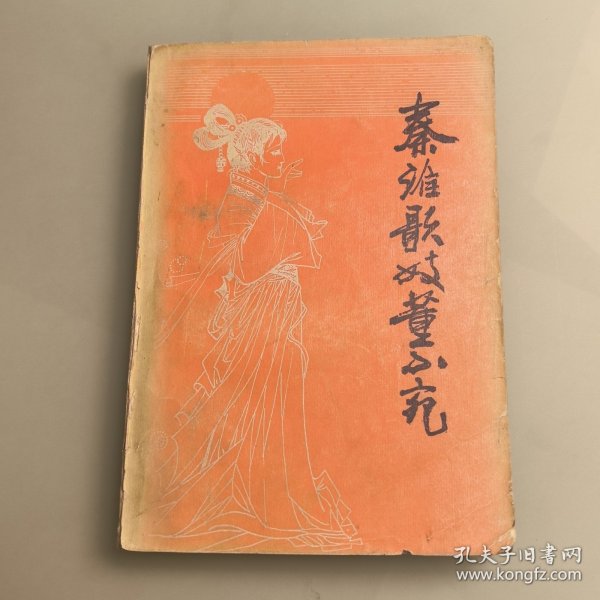 秦淮歌妓董小宛
孔夫子旧書网
www.kongfz.com